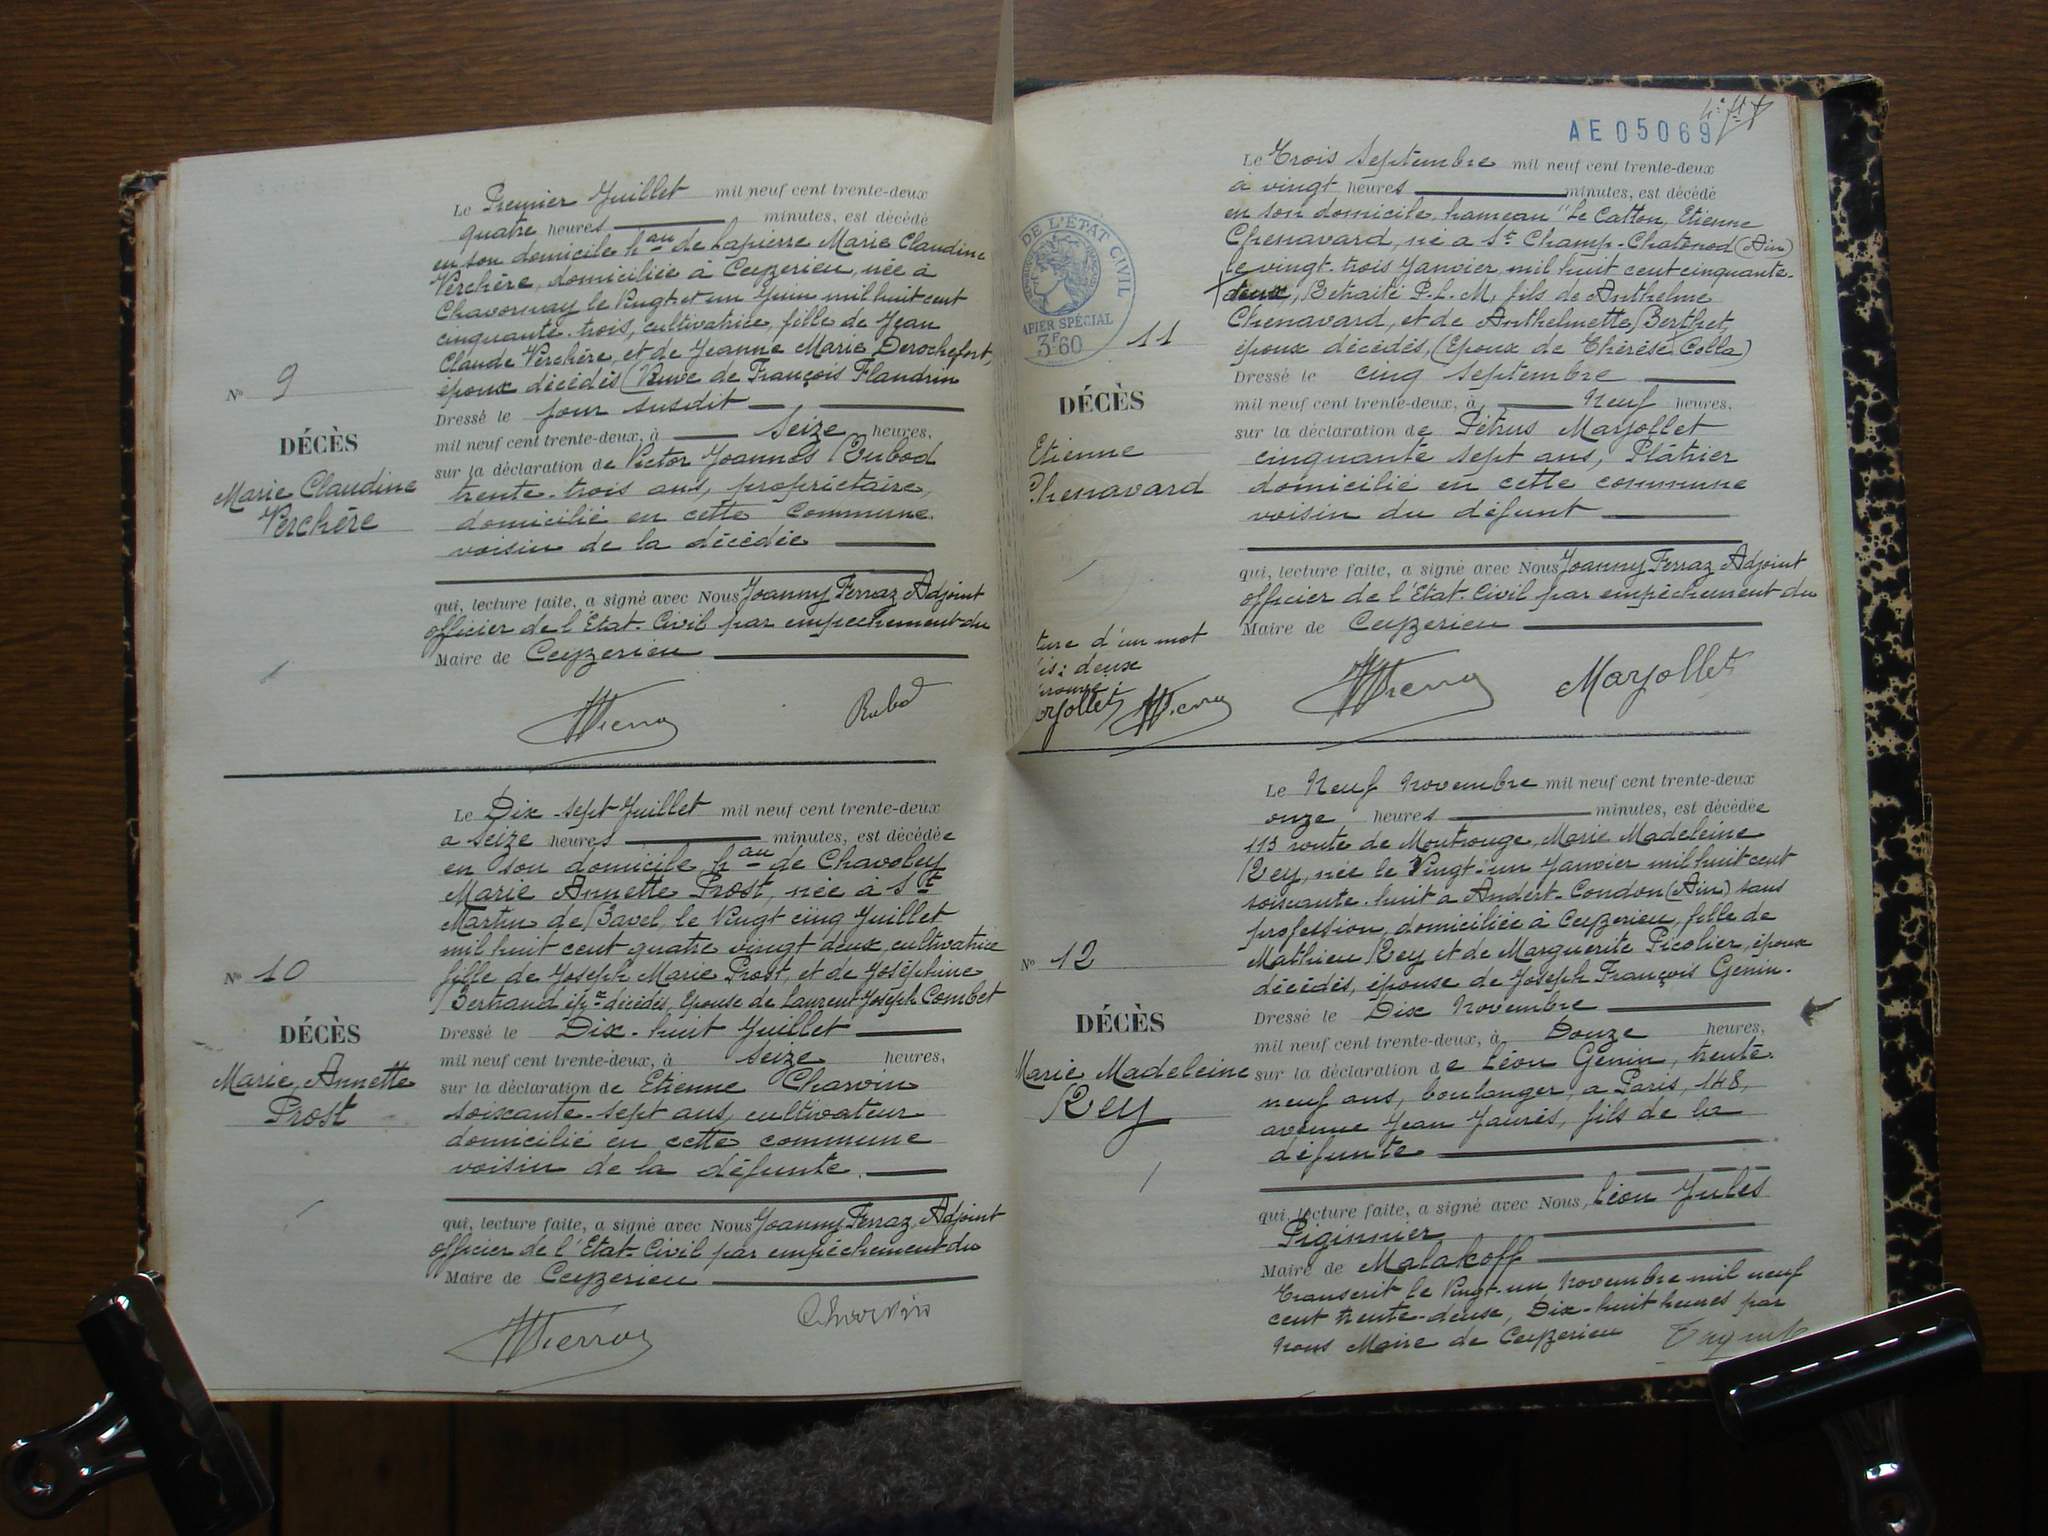 Le Premier Juillet mil neuf cent trente-deux
quatre heures minutes, est décédé
en son domicile hau de Lapierre Marie Claudine
Verchère, domiciliée à Ceyzerieu, née à
Chavornay le Vingt et un Juin mil huit cent
cinquante-trois, cultivatrice, fille de Jean
Claude Verchère, et de Jeanne Marie Derochefort,
époux décédés (Veuve de François Flandrin
Nº 9
DÉCÈS
Marie Claudine
Verchère
Dressé le jour susdit
mil neuf cent trente-deux, à Seize heures,
sur la déclaration de Victor Joannès Rubod
trente-trois ans, propriétaire,
domicilié en cette commune
voisin de la décédée
qui, lecture faite, a signé avec Nous Joanny Ferraz Adjoint
officier de l'Etat-Civil par empêchement du
Maire de Ceyzerieu
Rubod
Le Dix-sept Juillet mil neuf cent trente-deux
a seize heures minutes, est décédée
en son domicile hau de Chavoley
Marie Annette Prost, née à St
Martin de Bavel, le Vingt cinq Juillet
mil huit cent quatre vingt deux, cultivatrice
fille de Joseph Marie Prost, et de Joséphine
Bernand épx décédés, Epouse de Laurent Joseph Combet
Nº 10
DÉCÈS
Marie, Annette
Prost
Dressé le Dix-huit Juillet
mil neuf cent trente-deux, à seize heures,
sur la déclaration de Etienne Charvin
soixante-sept ans, cultivateur
domicilié en cette commune
voisin de la défunte.
qui, lecture faite, a signé avec Nous Joanny Ferraz, Adjoint
officier de l'Etat-Civil par empêchement du
Maire de Ceyzerieu
Charvin
AE 05069
Le Trois Septembre mil neuf cent trente-deux
à vingt heures minutes, est décédé
en son domicile, hameau "Le Catton, Etienne
Chenavard, né a St Champ-Chatonod (Ain)
le vingt-trois Janvier, mil huit cent cinquante-
deux, Retraité P.L.M, fils de Anthelme
Chenavard, et de Anthelmette Berthet,
époux décédés, (Epoux de Thérèse Colla)
DE L'ÉTAT CIVIL
PAPIER SPÉCIAL
3F60
11
DÉCÈS
Etienne
Chenavard
Dressé le cinq septembre
mil neuf cent trente-deux, à Neuf heures,
sur la déclaration de Pétrus Marjollet
cinquante sept ans, Plâtrier
domicilié en cette commune
voisin du défunt
qui, lecture faite, a signé avec Nous Joanny Ferraz Adjoint
officier de l'Etat-Civil par empêchement du
Maire de Ceyzerieu
ture d'un mot
is: deux
Marjollet
Le Neuf Novembre mil neuf cent trente-deux
onze heures minutes, est décédée
113 route de Montrouge, Marie Madeleine
Rey, née le Vingt-un Janvier mil huit cent
soixante-huit a Andert-Condon (Ain) sans
profession, domiciliée à Ceyzerieu, fille de
Mathieu Rey et de Marguerite Picolier, époux
décédés, épouse de Joseph François Genin.
Nº 12
DÉCÈS
Marie Madeleine
Rey
Dressé le Dix Novembre
mil neuf cent trente-deux, à Douze heures,
sur la déclaration de Léon Genin, trente-
neuf ans, boulanger, a Paris, 148,
avenue Jean Jaurès, fils de la
défunte
qui, lecture faite, a signé avec Nous, Léon Jules
Piginnier
Maire de Malakoff
Transcrit le Vingt-un Novembre mil neuf
cent trente-deux, Dix-huit heures par
nous Maire de Ceyzerieu